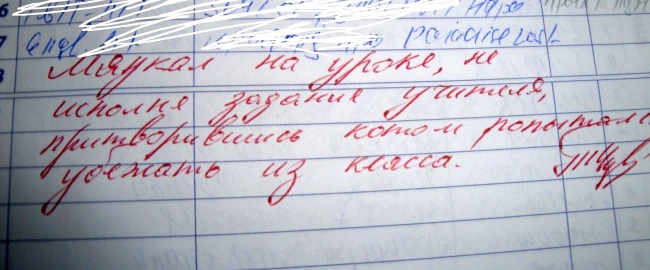 Мяукал на уроке, не
исполня задание учителя,
притворившись котом попытал
убежать из класса.